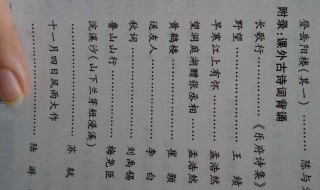 登岳阳楼(其一)……………陈与
附录:课外古诗词背诵
长歌行………………《乐府诗集
野望………………王绩
早寒江上有怀………………孟浩然
望洞庭湖赠张丞相………………孟浩然
黄鹤楼………………崔颢
送友人………………李白
秋词………………刘禹锡
鲁山山行………………梅尧臣
浣溪沙(山下兰芽短浸溪)………………苏轼
十一月四日风雨大作………………陆游